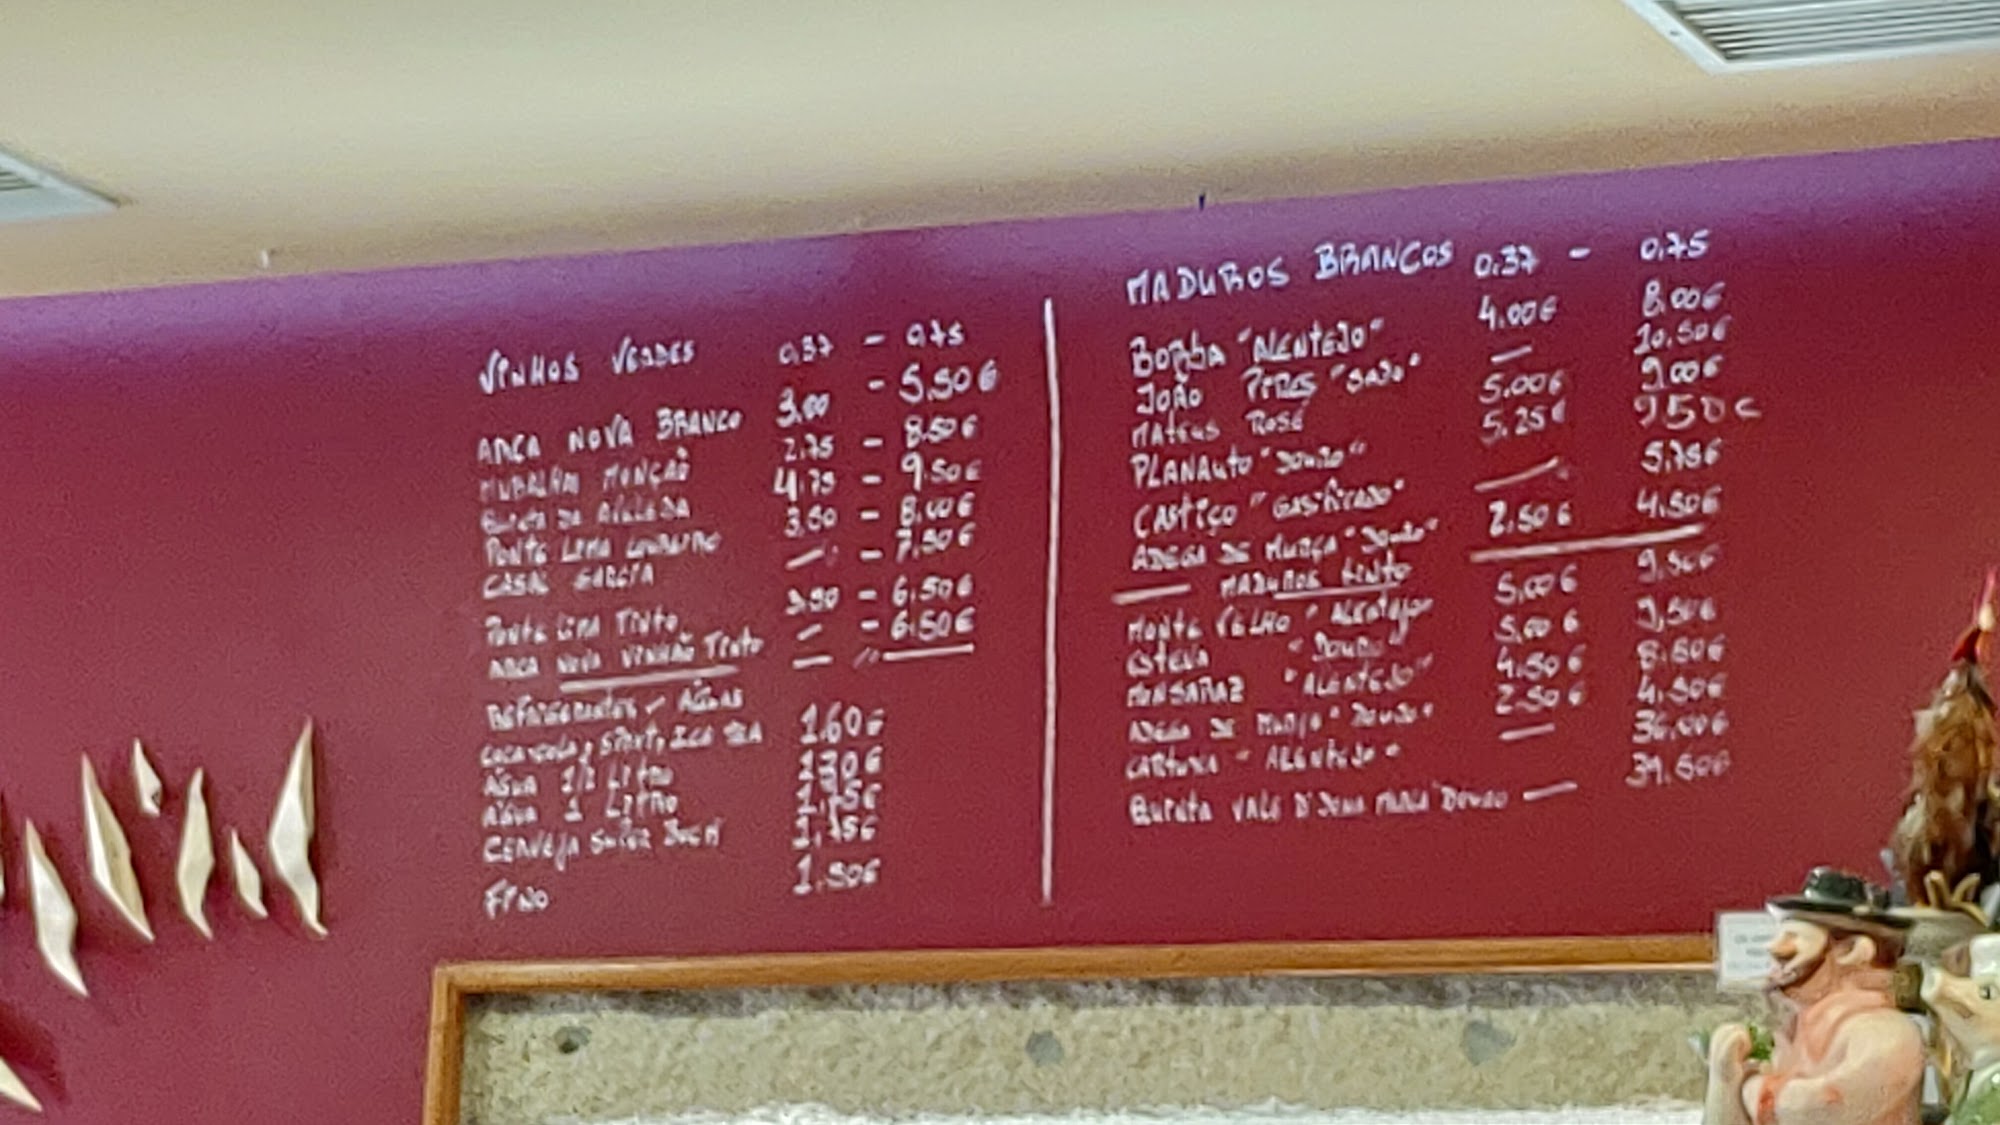 VINHOS VERDES 0,37 - 0,75
ARCA NOVA BRANCO 3.00 - 5.50€
MURALHAS MONÇÃO 2.75 - 8.50€
QUINTA DA AVELEDA 4.75 - 9.50€
PONTE LIMA LOUREIRO 3.50 - 8.00€
CASAL GARCIA — - 7.50€
PONTE LIMA TINTO 3.50 - 6.50€
ARCA NOVA VINHÃO TINTO — - 6.50€
REFRIGERANTES / ÁGUAS
COCA-COLA, SPRIT, ICE TEA 1.60€
ÁGUA 1/2 LITRO
ÁGUA 1 LITRO
CERVEJA SUPER BOCK 1.75€
FINO 1.50€
MADUROS BRANCOS 0.37 - 0.75
BORBA "ALENTEJO" 4.00€ 8.00€
JOÃO PIRES "SADO" — 10.50€
MATEUS ROSÉ 5.00€ 9.00€
PLANALTO "DOURO" 5.25€ 9.50€
CASTIÇO "GASIFICADO" — 5.75€
ADEGA DE MURÇA "DOURO" 2.50€ 4.50€
MADUROS TINTO
MONTE VELHO "ALENTEJO" 5.00€ 9.50€
ESTEVA "DOURO" 5.00€ 9.50€
MONSARAZ "ALENTEJO" 4.50€ 8.50€
ADEGA DE MURÇA "DOURO" 2.50€ 4.50€
CARTUXA "ALENTEJO" — 36.00€
QUINTA VALE D'DONA MARIA DOURO — 39.500